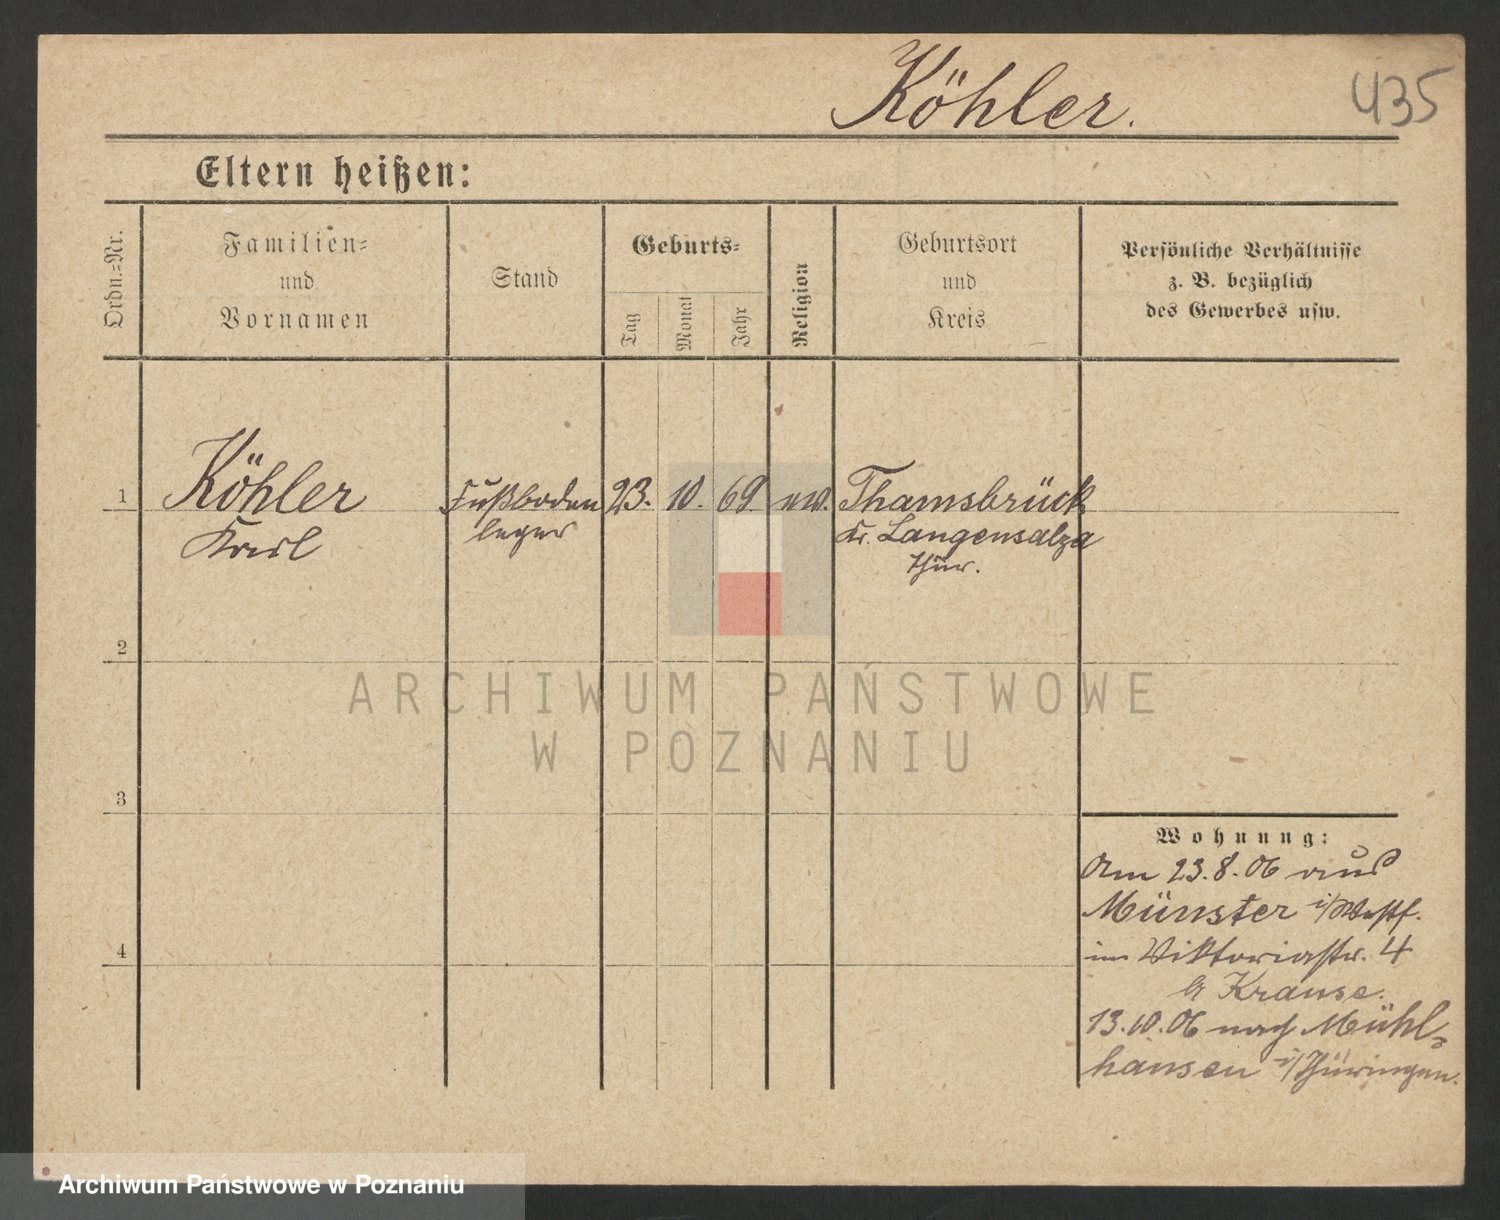 Köhler.
435
Eltern heißen:
Ordn.-Nr.
Familien-
und
Vornamen
Stand
Geburts-
Tag
Monat
Jahr
Religion
Geburtsort
und
Kreis
Persönliche Verhältnisse
z. B. bezüglich
des Gewerbes usw.
1
Köhler
Karl
Fußboden
leger
23. 10. 69. ev.
Thamsbrück
Kr. Langensalza
Thür.
2
3
4
ARCHIWUM PAŃSTWOWE
W POZNANIU
Wohnung:
Am 23.8.06 aus
Münster i/Westf.
im Viktoriastr. 4
b/ Krause.
13.10.06 nach Mühl-
hausen i/Thüringen.
Archiwum Państwowe w Poznaniu